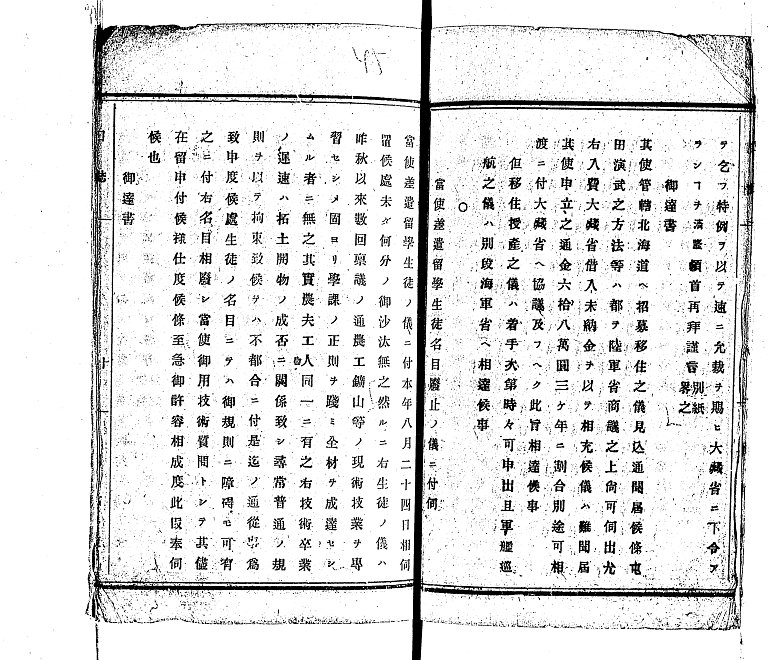 ヲ乞フ特例ヲ以テ速ニ允裁ヲ賜ヒ大藏省ニ下令ア
ランコヲ 頓首再拜謹言 別紙畧之
御達書
其使管轄北海道ヘ招募移住之儀見込通聞届候條屯
田演武之方法等ハ都テ陸軍省商議之上尚可伺出尤
右入費大藏省借入未納金ヲ以テ相充候儀ハ難聞届
其使申立之通金六拾八萬圓三ケ年ニ割合別途可相
渡ニ付大藏省ヘ協議及フヘク此旨相達候事
但移住授産之儀ハ着手次第時々可申出且軍艦巡
航之儀ハ別段海軍省ヘ相達候事
○
當使差遣留學生徒名目廢止ノ儀ニ付伺
當使差遣留學生徒ノ儀ニ付本年八月二十四日相伺
置候處未ダ何分ノ御沙汰無之然ルニ右生徒ノ儀ハ
昨秋以來數回稟議ノ通農工鑛山等ノ現術技業ヲ專
習セシメ固ヨリ學課ノ正則ヲ踐ミ全材ヲ成達セシ
ムル者ニ無之其實農夫工人同一ニ有之右技術卒業
ノ遲速ハ拓土開物ノ成否ニ關係致シ尋常普通ノ規
則ヲ以テ拘束致候テハ不都合ニ付是迄ノ通從事爲
致申度候處生徒ノ名目ニテハ御規則ニ障碍モ可有
之ニ付右名目相廢シ當使御用技術質問トシテ其儘
在留申付候樣仕度候條至急御許容相成度此段奉伺
候也
御達書
日誌